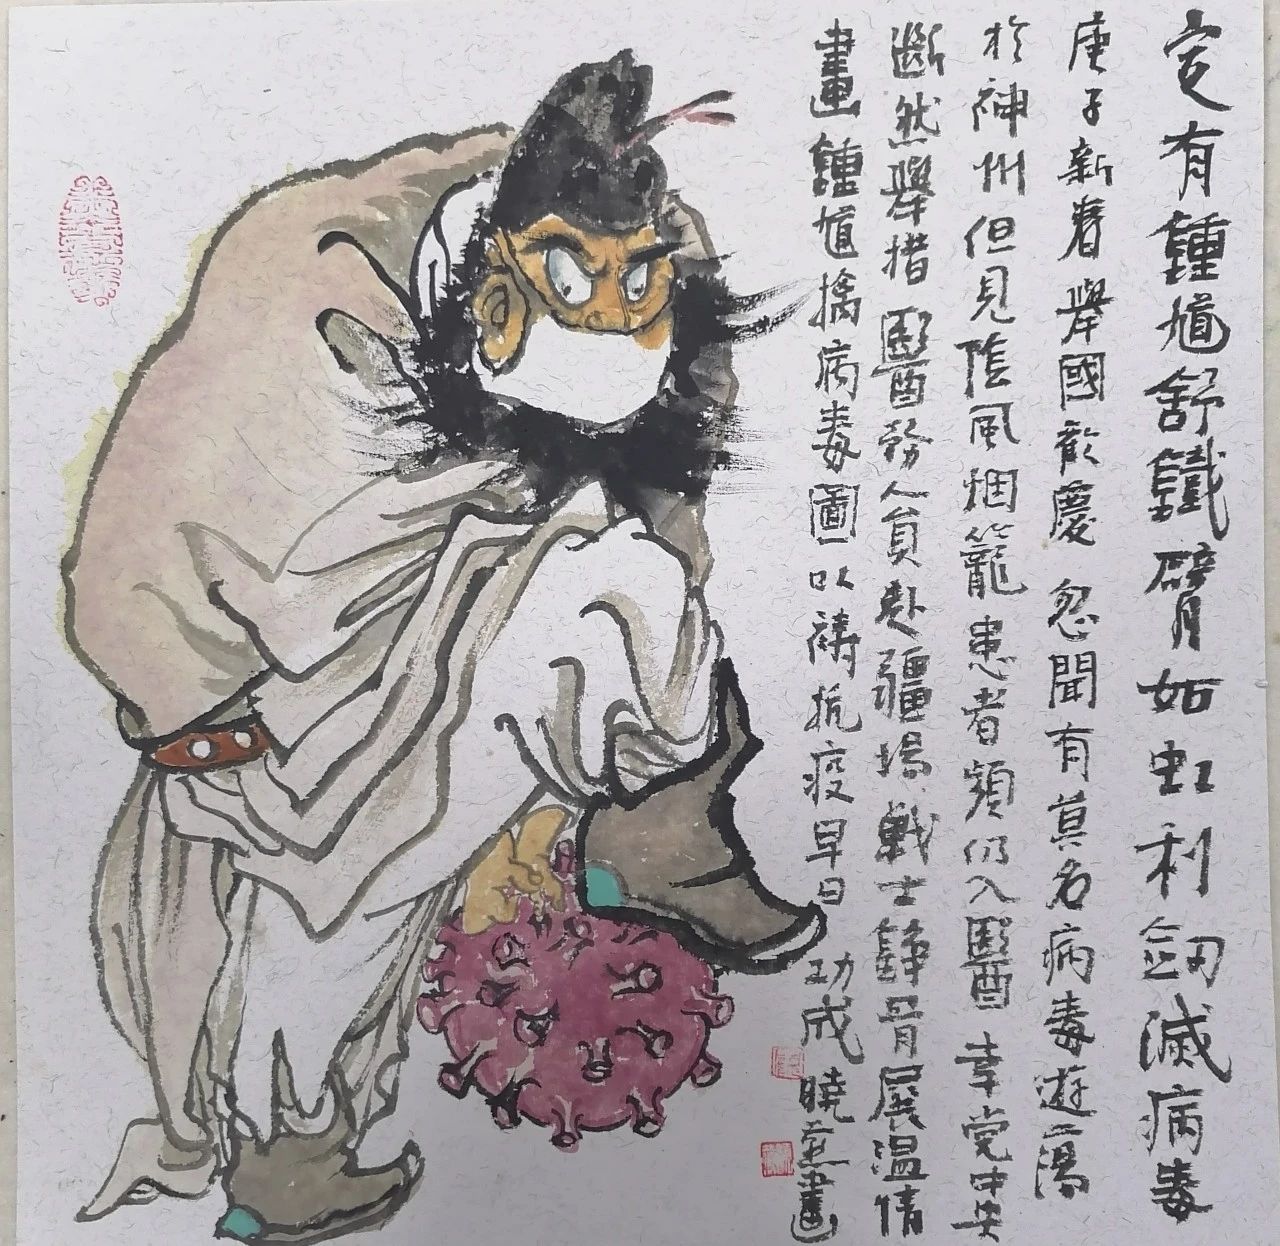 定有鍾馗舒鐵臂如虹利劒滅病毒
庚子新春舉國歡慶忽聞有莫名病毒遊蕩
於神州但見陰風烟籠患者頻仍入醫幸党中央
斷然舉措醫務人員赴疆場戰士錚骨展温情
畫鍾馗擒病毒圖以禱抗疫早日功成曉 畫